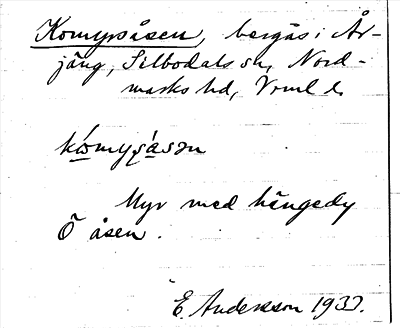 Komyrsåsen, bergås i År-
jäng, Silbodals sn, Nord-
marks hd, Vrml l.
kómyṣåsən
Myr med hängedy
Ö åsen.
E. Andersson 1937.